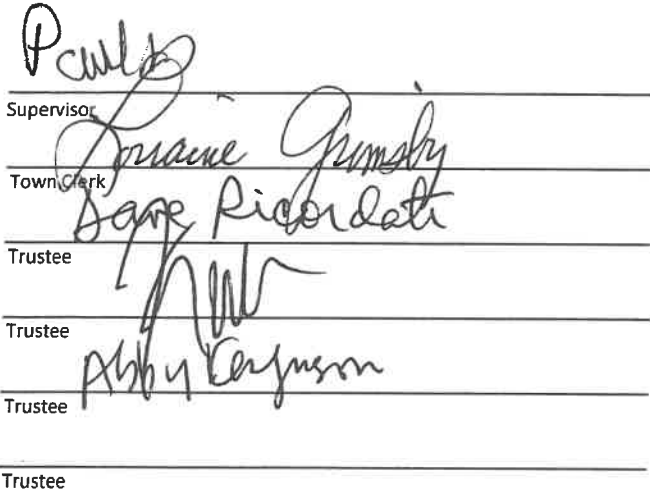 Supervisor
Lorraine Grimsby
Town Clerk
Dave Ricordati
Trustee
Trustee
Abby Ferguson
Trustee
Trustee